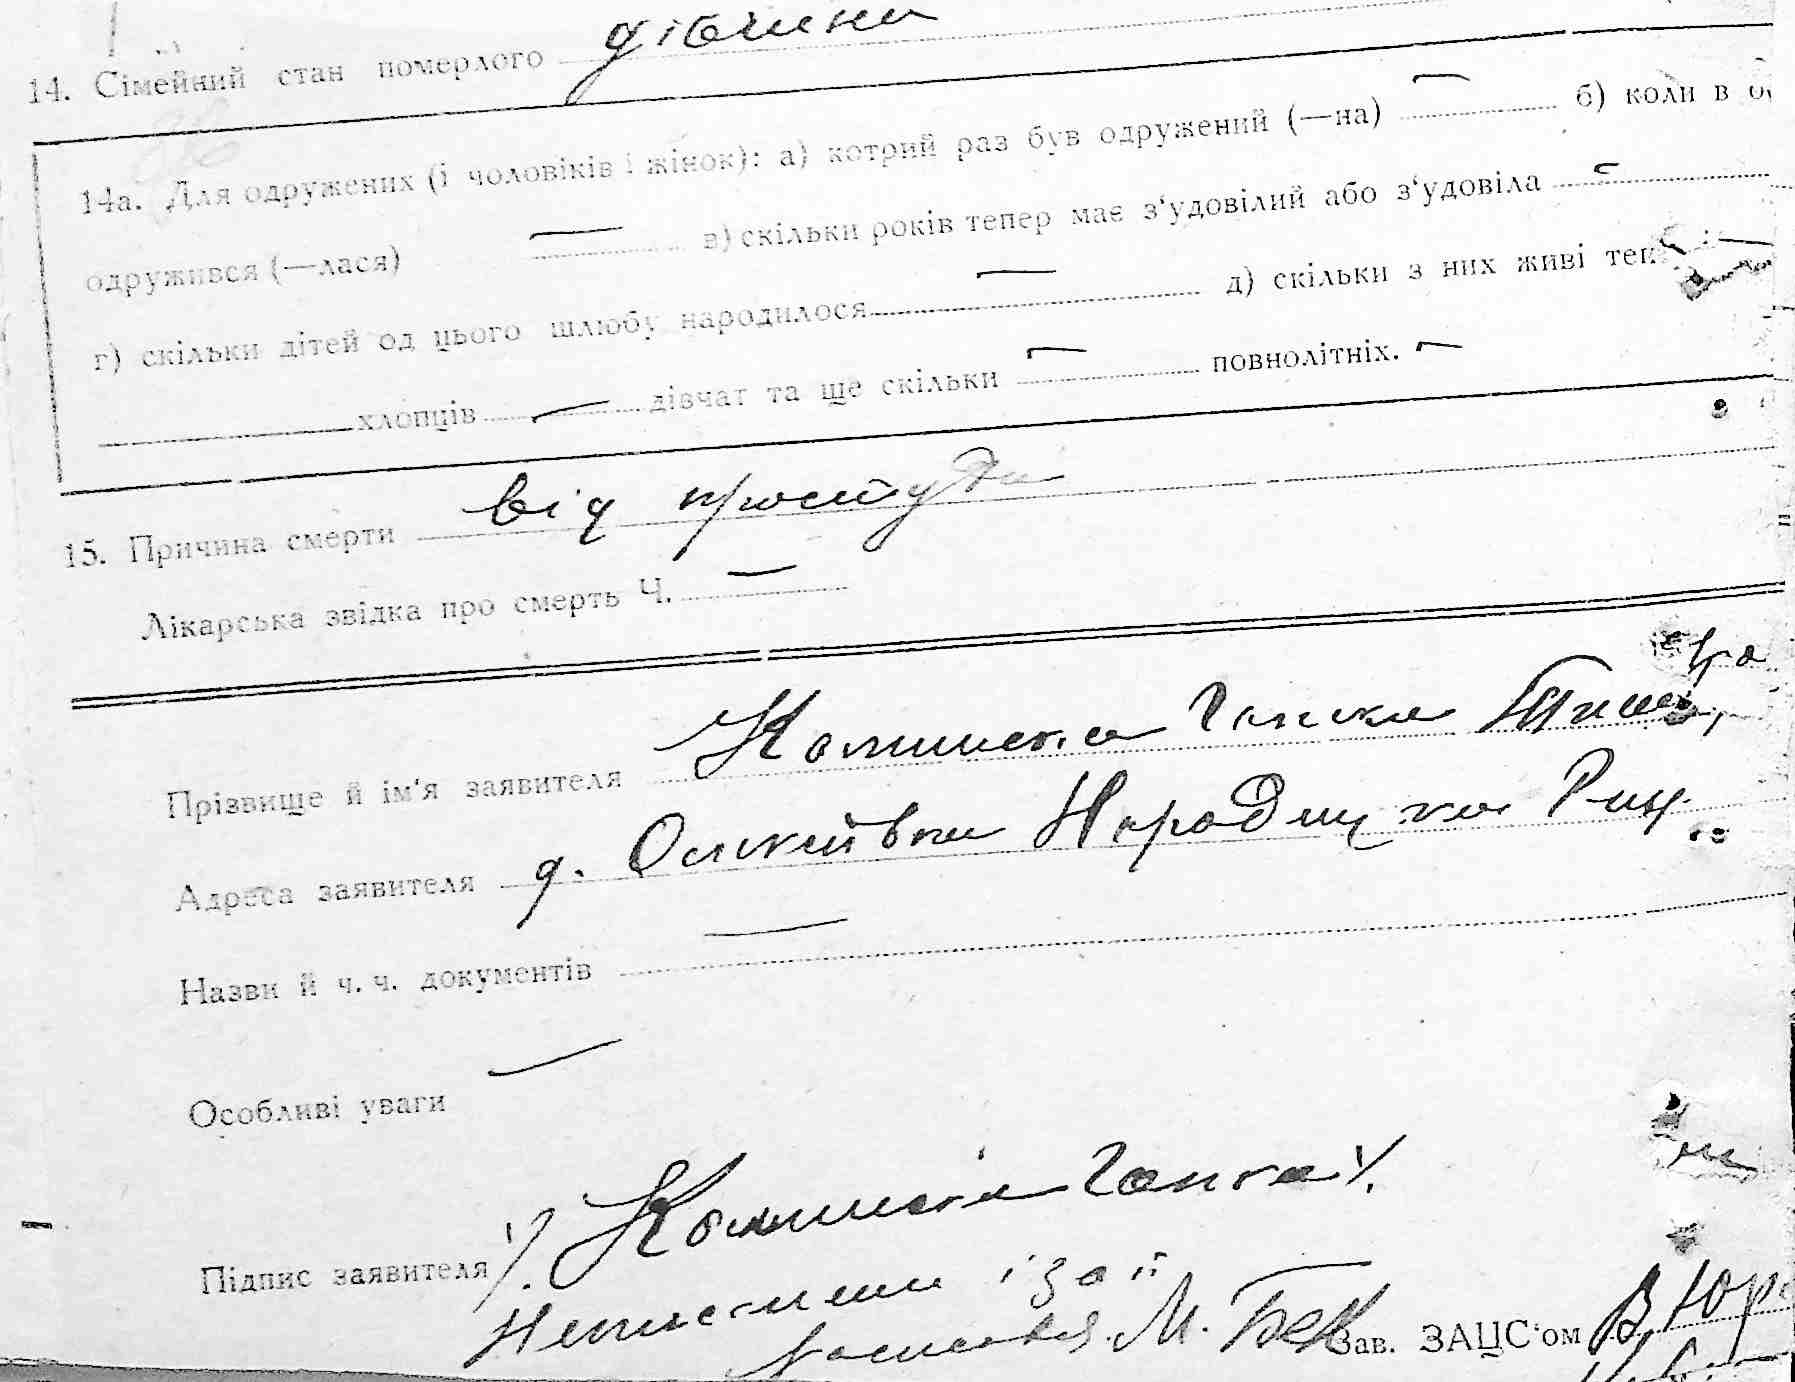 14. Сімейний стан померлого дівчина
14а. Для одружених (і чоловіків і жінок): а) котрий раз був одружений (—на) — б) коли в
одружився (—лася) — в) скільки років тепер має з‘удовілий або з‘удовіла —
г) скільки дітей од цього шлюбу народилося — д) скільки з них живі теп
хлопців — дівчат та ще скільки — повнолітніх. —
15. Причина смерти від простуди
Лікарська звідка про смерть Ч. —
Прізвище й ім‘я заявителя Ганка
Адреса заявителя д. Народицького Рни
Назви й ч. ч. документів —
Особливі уваги —
Підпис заявителя Ганка
Неписьмена і за її
М. Бек Зав. ЗАЦС‘ом